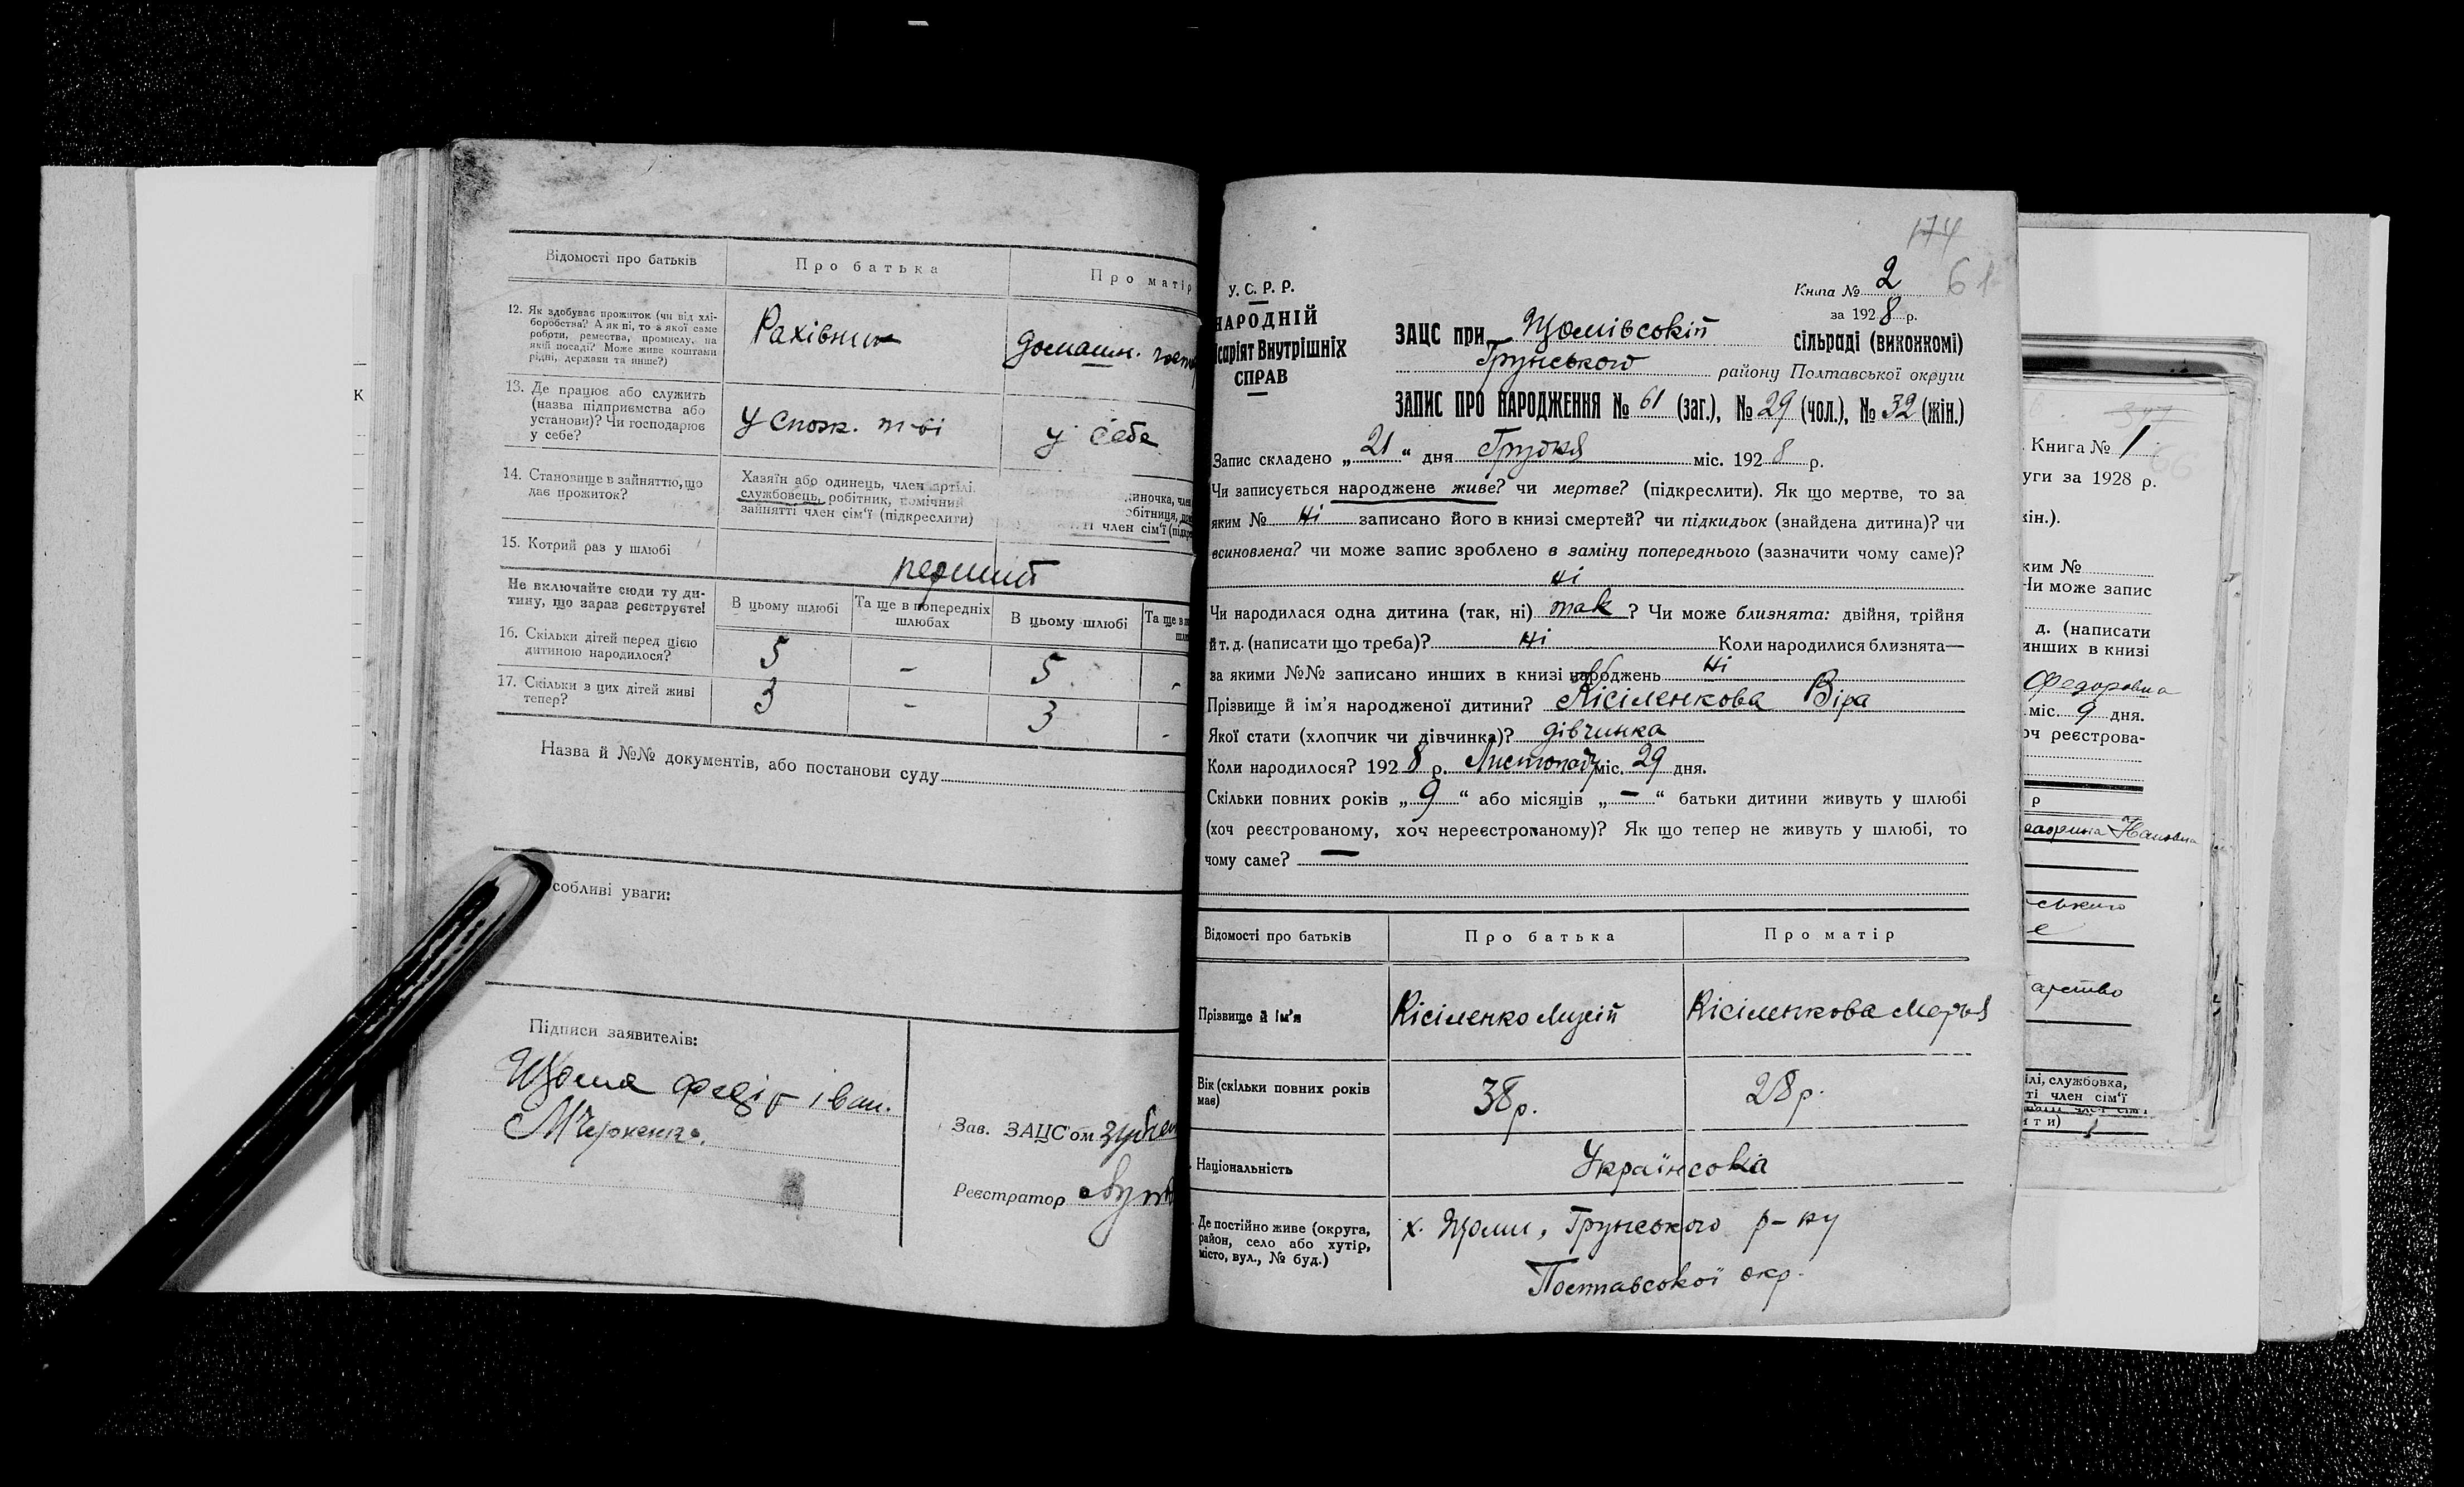 Відомості про батьків
Про батька
Про матір
12. Як здобуває прожиток (чи від хлі-
боробства? А як ні, то з якої саме
роботи, ремества, промислу, на
якій посаді? Може живе коштами
рідні, держави та инше?)
Рахівник
домашн.
13. Де працює або служить
(назва підприємства або
установи)? Чи господарює
у себе?
У спож. т-ві
у себе
14. Становище в зайняттю, що
дає прожиток?
Хазяїн або одинець, член артілі,
службовець, робітник, помічний
зайнятті член сім'ї (підкреслити)
диночка, член
обітниця,
член сім'ї
15. Котрий раз у шлюбі
перший
Не включайте сюди ту ди-
тину, що зараз реєструєте!
В цьому шлюбі
Та ще в попередніх
шлюбах
В цьому шлюбі
Та ще в
16. Скільки дітей перед цією
дитиною народилося?
5 - 5 -
17. Скільки з цих дітей живі
тепер?
3 - 3 -
Назва й №№ документів, або постанови суду
собливі уваги:
Підписи заявителів:
Щома Федір Іван.
Зав. ЗАЦС'ом
Реєстратор
174
61
У. С. Р. Р.
НАРОДНІЙ
саріят Внутрішніх
СПРАВ
Книга № 2
за 1928 р.
ЗАЦС при Щомівській сільраді (виконкомі)
Грунського району Полтавської округи
ЗАПИС ПРО НАРОДЖЕННЯ № 61 (заг.), № 29 (чол.), № 32 (жін.)
Запис складено „21“ дня Грудня міс. 1928 р.
Чи записується народжене живе? чи мертве? (підкреслити). Як що мертве, то за
яким № ні записано його в книзі смертей? чи підкидьок (знайдена дитина)? чи
всиновлена? чи може запис зроблено в заміну попереднього (зазначити чому саме)?
ні
Чи народилася одна дитина (так, ні) так? Чи може близнята: двійня, трійня
й т. д. (написати що треба)? ні Коли народилися близнята—
за якими №№ записано инших в книзі народжень ні
Прізвище й ім'я народженої дитини? Кісіленкова Віра
Якої стати (хлопчик чи дівчинка)? дівчинка
Коли народилося? 1928 р. Листопаду міс. 29 дня.
Скільки повних років „9“ або місяців „—“ батьки дитини живуть у шлюбі
(хоч реєстрованому, хоч нереєстрованому)? Як що тепер не живуть у шлюбі, то
чому саме? —
Відомості про батьків
Про батька
Про матір
Прізвище й ім'я
Кісіленко Мусій
Кісіленкова Марья
Вік (скільки повних років
має)
38 р.
28 р.
Національність
Українсокія
Де постійно живе (округа,
район, село або хутір,
місто, вул., № буд.)
х. Щоми, Грунського р-ну
Полтавської окр.
Книга № 1
уги за 1928 р.
ін.).
ким №
Чи може запис
д. (написати
инших в книзі
Федоровна
міс. 9 дня.
оч реєстрова-
р
Ивановна
ського
лі, службовка,
ті член сім'ї